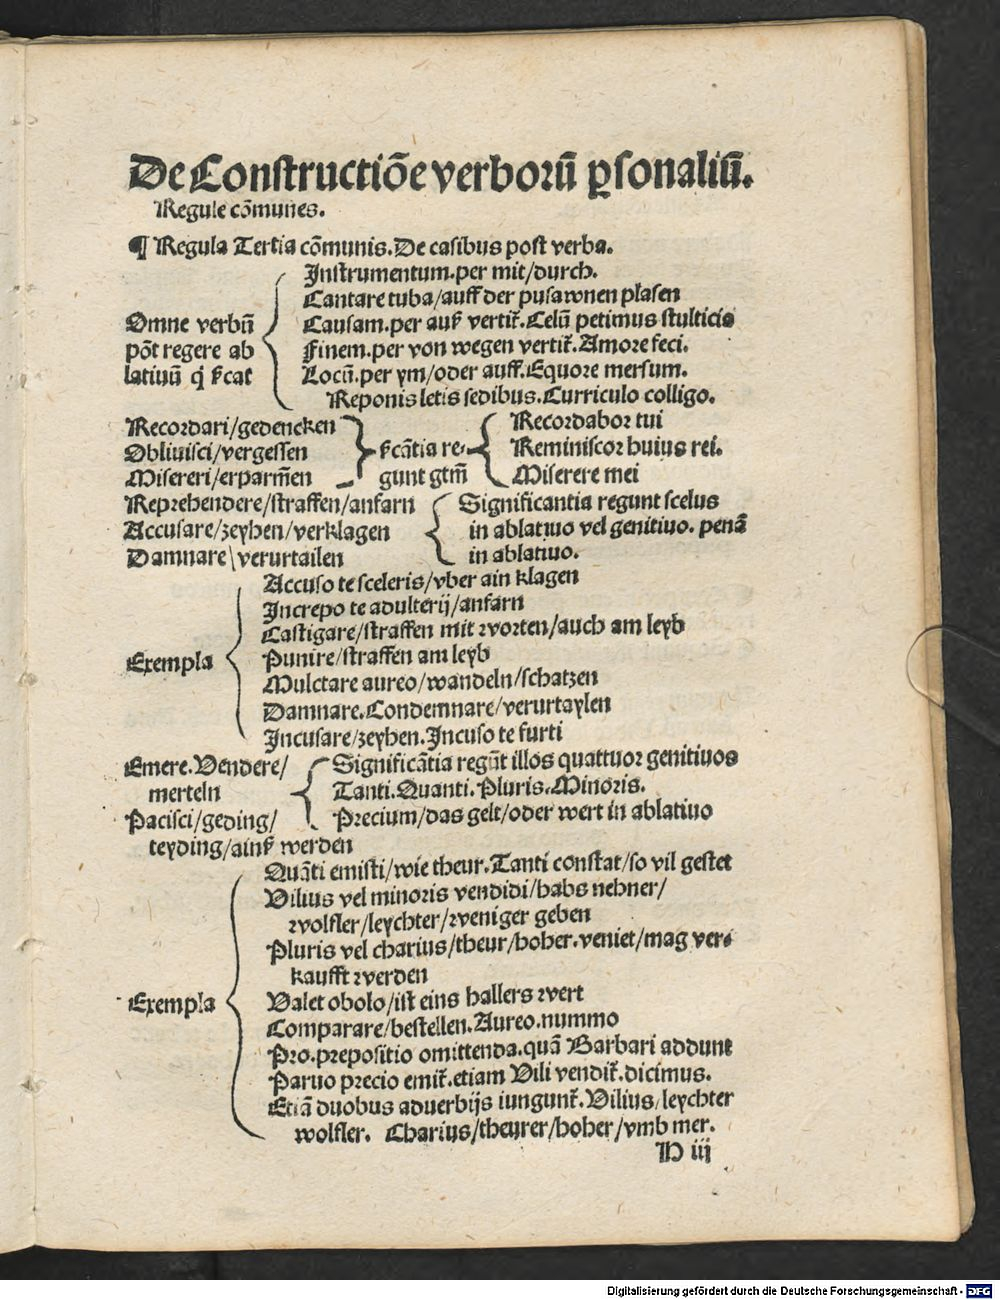 De Constructiõe verborũ ꝑsonaliũ.
Regule cõmunes.
¶ Regula Tertia cõmunis. De casibus post verba.
Omne verbũ
põt regere ab
latiuũ
Instrumentum. per mit/durch.
Cantare tuba/auff der pusawnen plasen
Causam. per auß vertit̃. Celũ petimus stulticia
Finem. per von wegen vertit̃. Amore feci.
Locũ. per ym/oder auff. Equore mersum.
Reponis letis sedibus. Curriculo colligo.
Recordari/gedencken
Obliuisci/vergessen
Misereri/erparm̃en
ßcãtia re-
gunt gtm̃
Recordabor tui
Reminiscor huius rei.
Miserere mei
Reprehendere/straffen/anfarn
Accusare/zeyhen/verklagen
Damnare\verurtailen
Significantia regunt scelus
in ablatiuo vel genitiuo. penã
in ablatiuo.
Exempla
Accuso te sceleris/vber ain klagen
Increpo te adulterij/anfarn
Castigare/straffen mit worten/auch am leyb
Punire/straffen am leyb
Mulctare aureo/wandeln/schatzen
Damnare. Condemnare/verurtaylen
Incusare/zeyhen. Incuso te furti
Emere. Vendere/
merteln
Pacisci/geding/
teyding/ainß werden
Significãtia regũt illos quattuor genitiuos
Tanti. Quanti. Pluris. Minoris.
Precium/das gelt/oder wert in ablatiuo
Exempla
Quãti emisti/wie theur. Tanti constat/so vil gestet
Vilius vel minoris vendidi/habs nehner/
wolfler/leychter/weniger geben
Pluris vel charius/theur/hoher. veniet/mag ver-
kaufft werden
Valet obolo/ist eins hallers wert
Comparare/bestellen. Aureo. nummo
Pro. prepositio omittenda. quã Barbari addunt
Paruo precio emit̃. etiam Vili vendit̃. dicimus.
Etiã duobus aduerbijs iungunt̃. Vilius/leychter
wolfler. Charius/theurer/hoher/vmb mer.
H iij
Digitalisierung gefördert durch die Deutsche Forschungsgemeinschaft - DFG